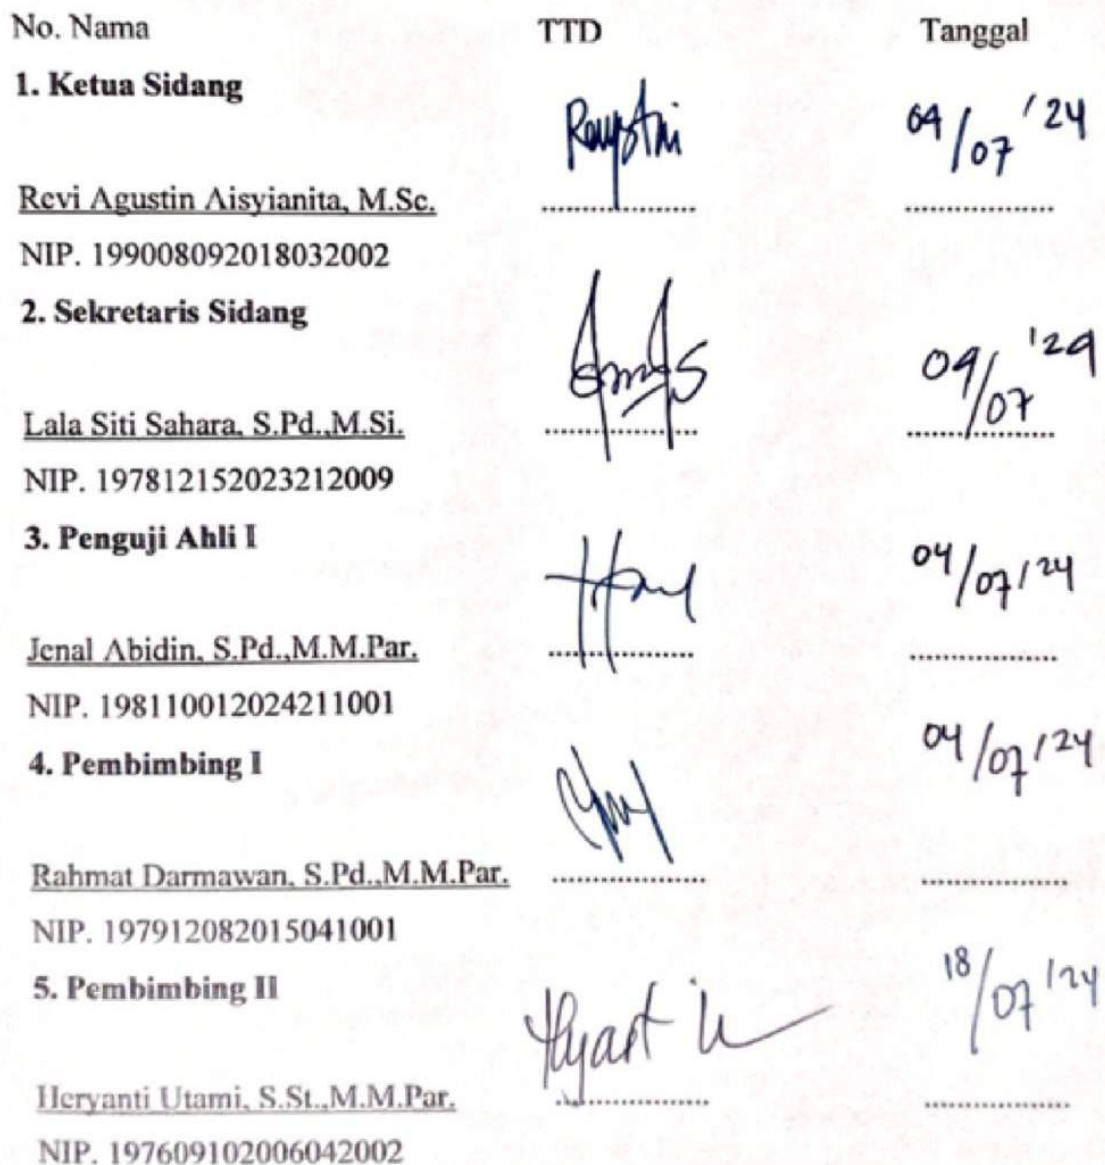 No. Nama TTD Tanggal
1. Ketua Sidang
04/07 '24
Revi Agustin Aisyianita, M.Sc. ....................
NIP. 199008092018032002
2. Sekretaris Sidang
04/07 '24
Lala Siti Sahara, S.Pd.,M.Si. ....................
NIP. 197812152023212009
3. Penguji Ahli I
04/07/24
Jenal Abidin, S.Pd.,M.M.Par. ....................
NIP. 198110012024211001
4. Pembimbing I
04/07/24
Rahmat Darmawan, S.Pd.,M.M.Par. ....................
NIP. 197912082015041001
5. Pembimbing II
18/07/24
Heryanti Utami, S.St.,M.M.Par. ....................
NIP. 197609102006042002